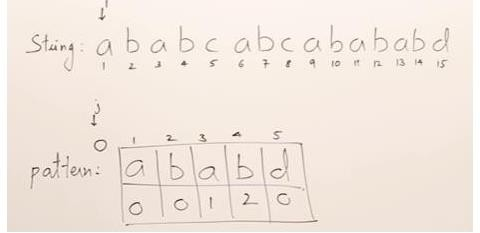 i
String: a b a b c a b c a b a b a b d
1 2 3 4 5 6 7 8 9 10 11 12 13 14 15
j
0
1 2 3 4 5
pattern: a b a b d
0 0 1 2 0